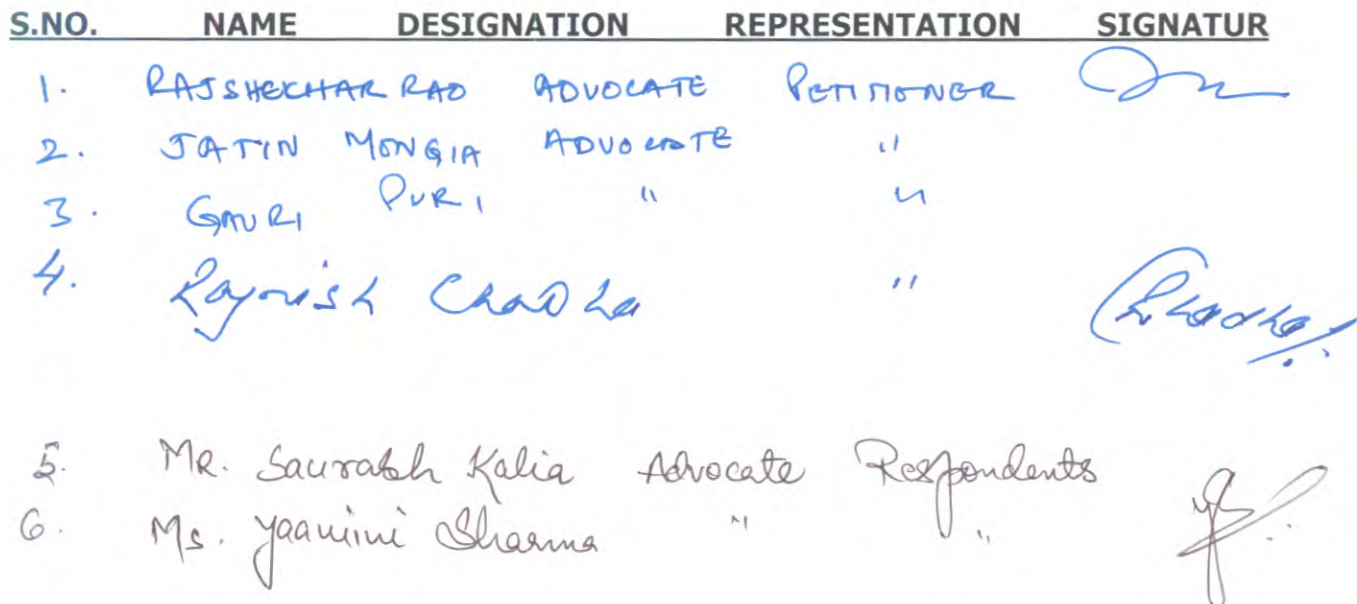 S.NO. NAME DESIGNATION REPRESENTATION SIGNATUR
1. RAJSHEKHAR RAO ADVOCATE PETITIONER
2. JATIN MONGIA ADVOCATE "
3. GAURI PURI " "
4. Rajnish Chadha " Chadha
5. MR. Saurabh Kalia Advocate Respondents
6. Ms. Yaamini Sharma " "